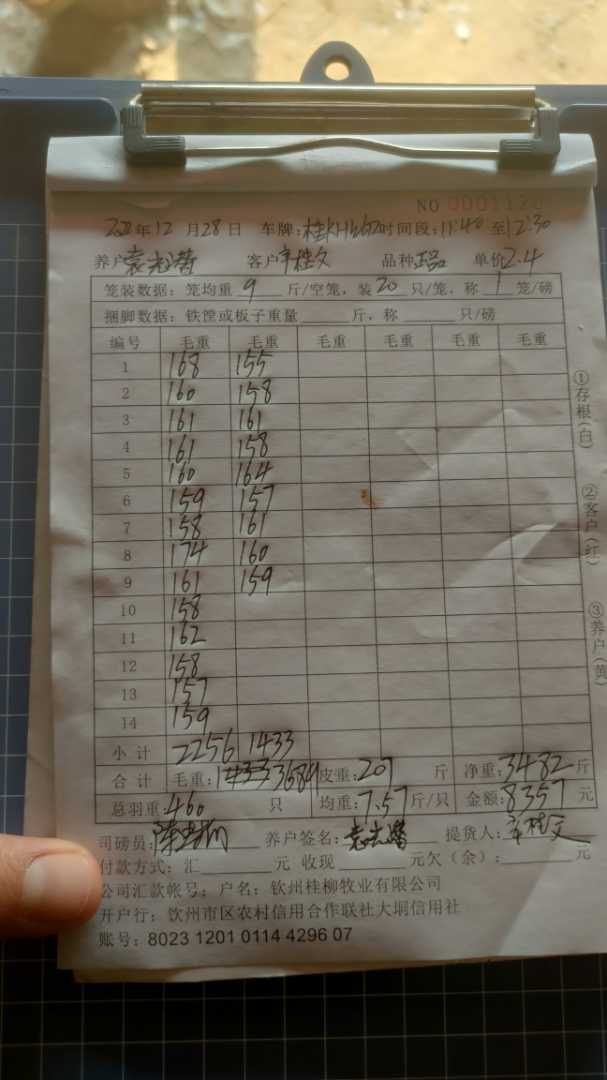 NO 0001120
2021年12月28日 车牌: 时间段:11:40至12:30
养户 客户辛桂文 品种正品 单价2.4
笼装数据：笼均重9斤/空笼，装20只/笼，称1笼/磅
捆脚数据：铁镗或板子重量____斤，称____只/磅
编号 毛重 毛重 毛重 毛重 毛重 毛重
1 168 155
2 160 158
3 161 161
4 161 158
5 160 164
6 159 157
7 158 161
8 174 160
9 161 159
10 158
11 162
12 158
13 157
14 159
小计 2256 1433
合计 毛重:1433 3689 皮重:207斤 净重:3482斤
总羽重:460只 均重:7.57斤/只 金额:8357元
司磅员: 养户签名: 提货人:辛桂文
付款方式：汇____元 收现____元欠（余）：____元
公司汇款帐号：户名：钦州桂柳牧业有限公司
开户行：钦州市区农村信用合作联社大垌信用社
账号：8023 1201 0114 4296 07
①存根（白）
②客户（红）
③养户（黄）